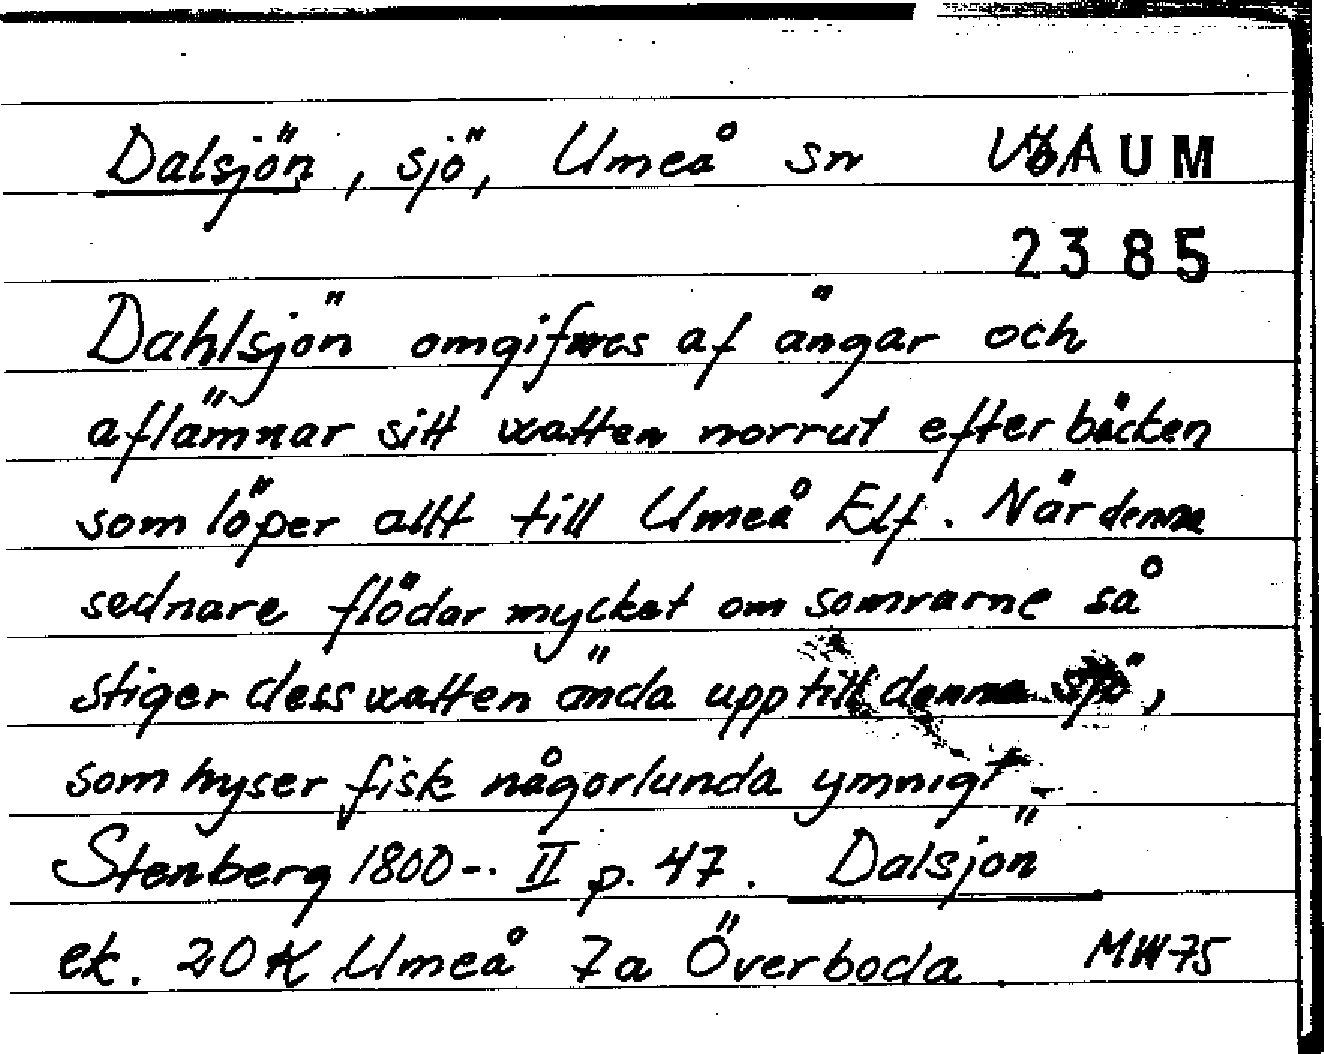 Dalsjön, sjö, Umeå sn Vb AUM
2385
Dahlsjön omgifwes af ängar och
aflämnar sitt watten norrut efter bäcken
som löper allt till Umeå Elf. När denna
sednare flödar mycket om somrarne så
stiger dess watten ända upp till denna sjö,
som hyser fisk någorlunda ymnigt -
Stenberg 1800-. II p. 47. Dalsjön
ek. 20K Umeå 7a Överboda. MW75